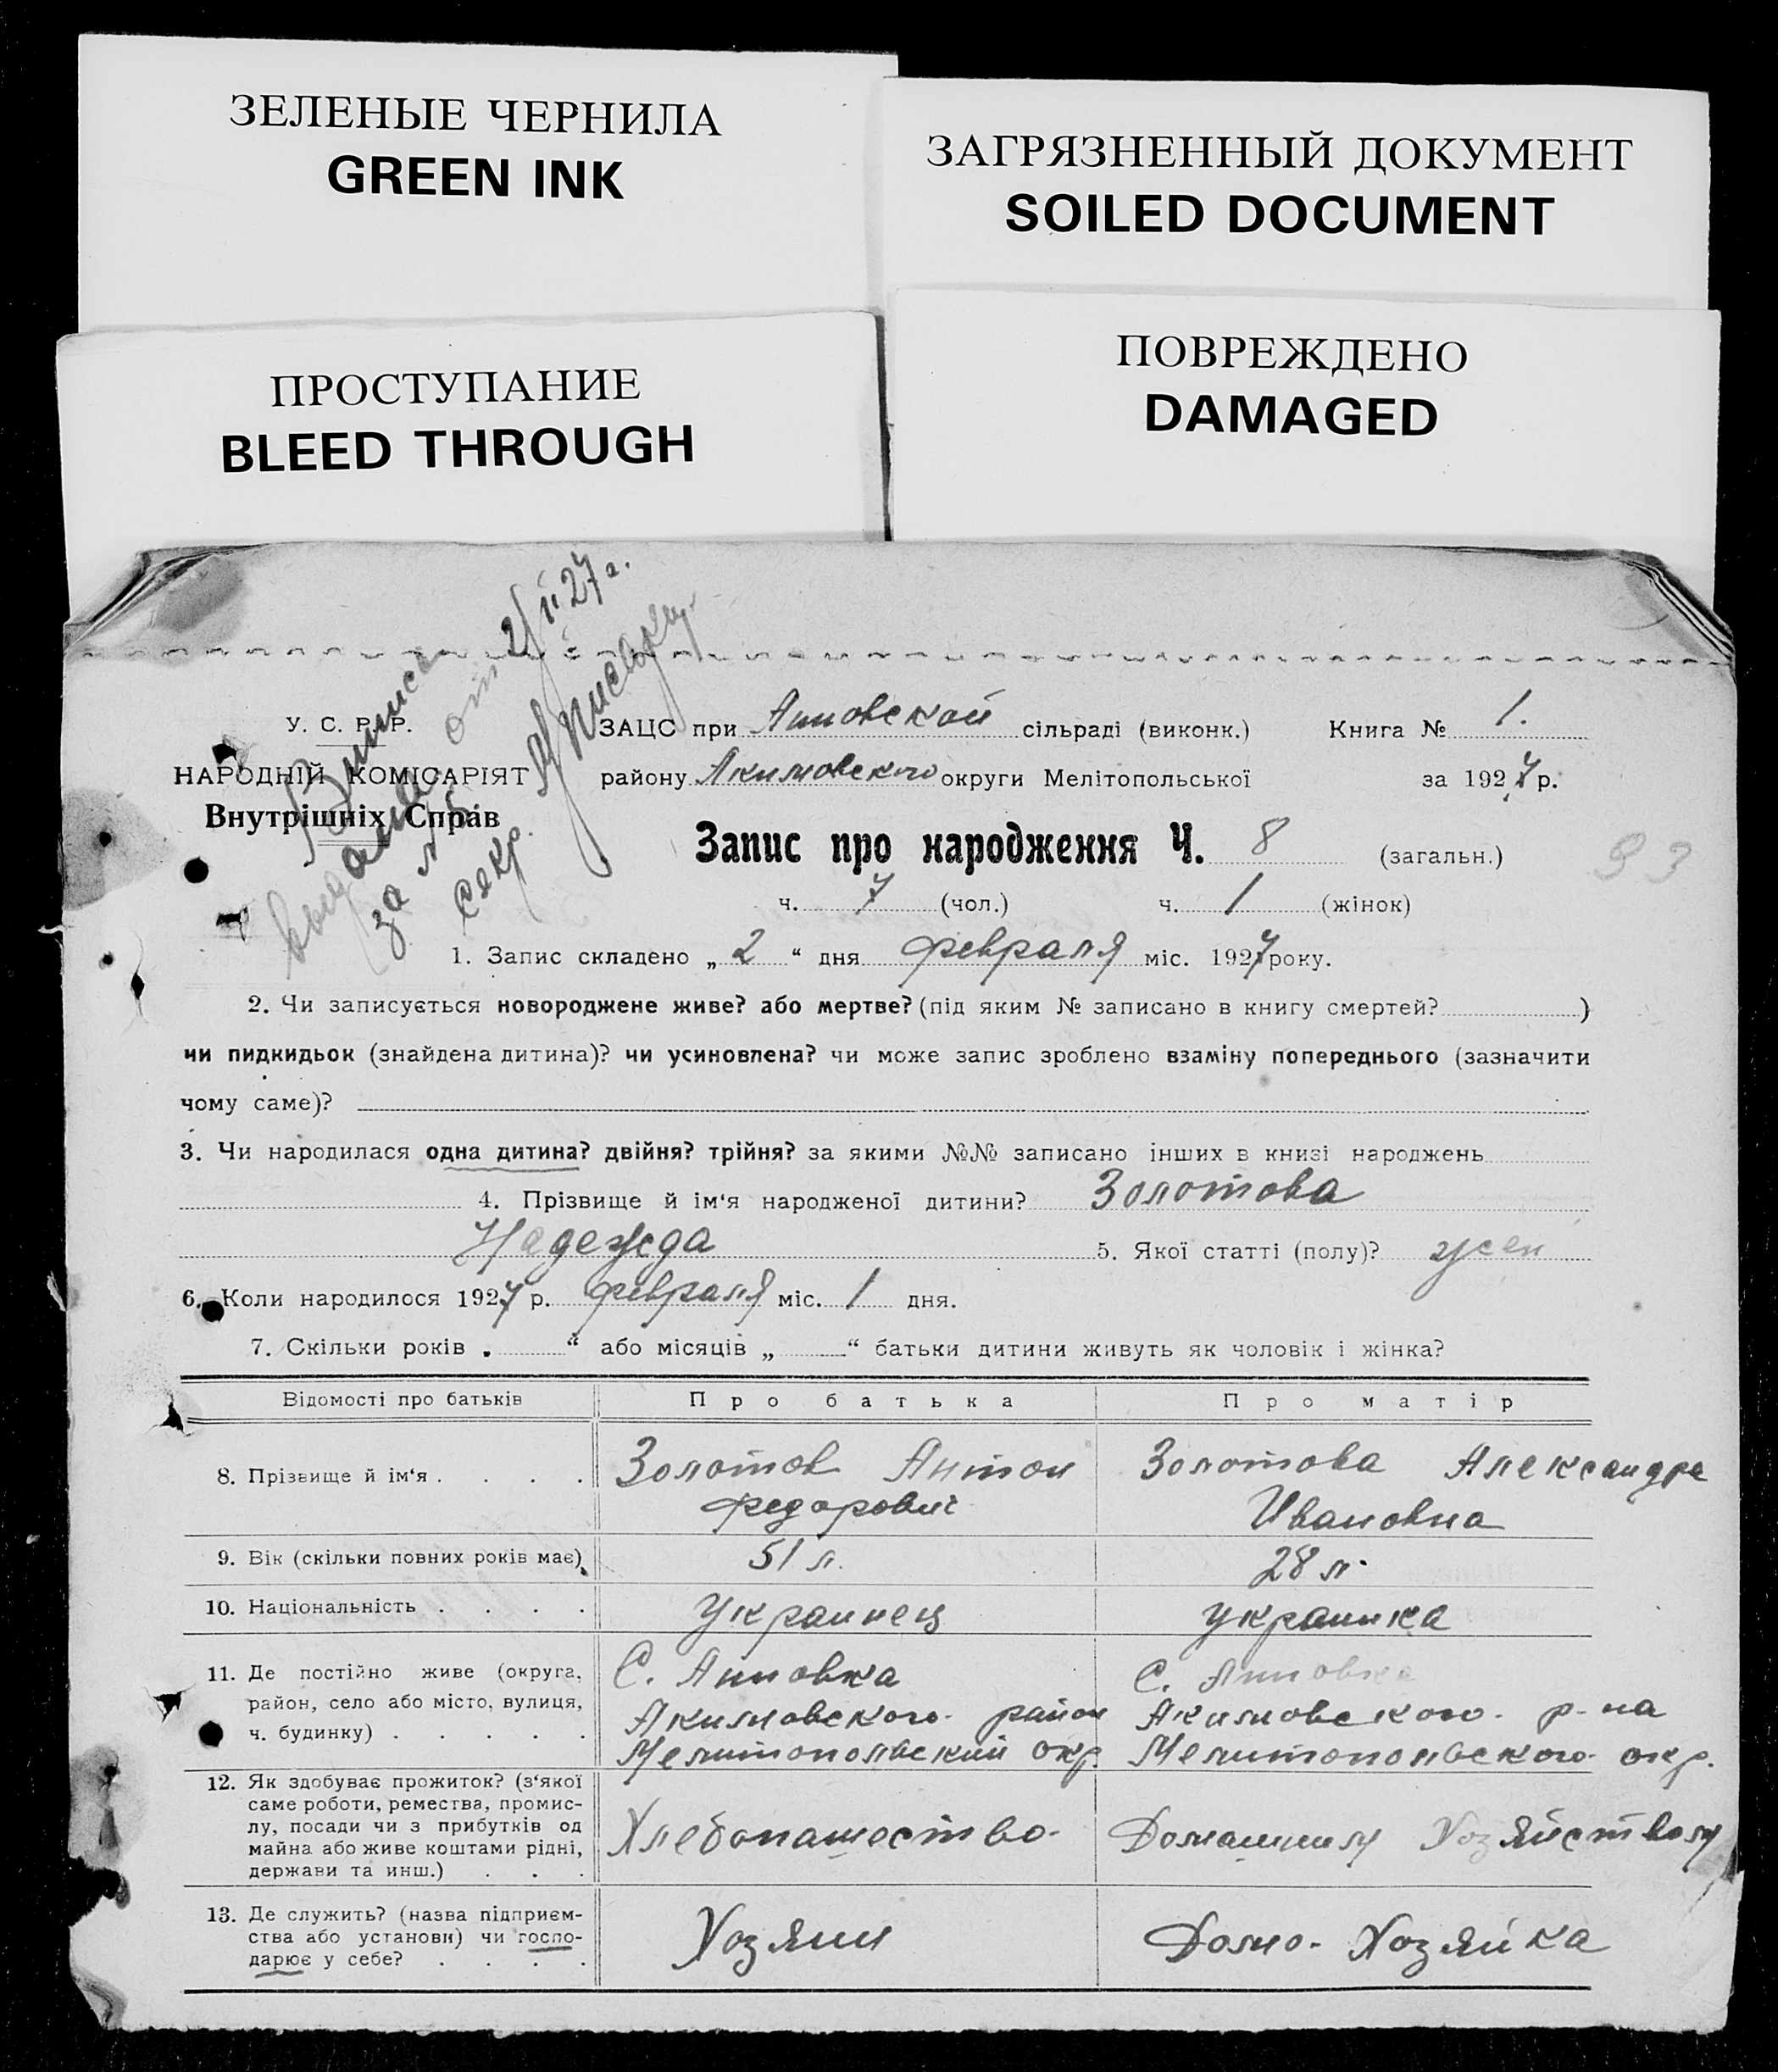 ЗЕЛЕНЫЕ ЧЕРНИЛА
GREEN INK
ЗАГРЯЗНЕННЫЙ ДОКУМЕНТ
SOILED DOCUMENT
ПРОСТУПАНИЕ
BLEED THROUGH
ПОВРЕЖДЕНО
DAMAGED
Выпись
выдана от 2/II 27 г.
за №
секр.
У. С. Р. Р.
НАРОДНІЙ КОМІСАРІЯТ
Внутрішніх Справ
ЗАЦС при Анновской сільраді (виконк.) Книга № 1.
району Акимовского округи Мелітопольської за 1927 р.
Запис про народження Ч. 8 (загальн.)
93
ч. 7 (чол.) ч. 1 (жінок)
1. Запис складено „ 2 “ дня февраля міс. 1927 року.
2. Чи записується новороджене живе? або мертве? (під яким № записано в книгу смертей? )
чи пидкидьок (знайдена дитина)? чи усиновлена? чи може запис зроблено взаміну попереднього (зазначити
чому саме)?
3. Чи народилася одна дитина? двійня? трійня? за якими №№ записано інших в книзі народжень
4. Прізвище й ім‘я народженої дитини? Золотова
Надежда 5. Якої статті (полу)? жен
6. Коли народилося 1927 р. февраля міс. 1 дня.
7. Скільки років „ “ або місяців „ “ батьки дитини живуть як чоловік і жінка?
Відомості про батьків Про батька Про матір
8. Прізвище й ім‘я . . . . Золотов Антон Золотова Александра
Федорович Ивановна
9. Вік (скільки повних років має) 51 л. 28 л.
10. Національність . . . . Украинец Украинка
11. Де постійно живе (округа, С. Анновка С. Анновка
район, село або місто, вулиця, Акимовского район Акимовского р-на
ч. будинку) . . . . . Мелитопольский окр. Мелитопольского окр.
12. Як здобуває прожиток? (з‘якої
саме роботи, ремества, промис-
лу, посади чи з прибутків од Хлебопашество Домашним Хозяйством
майна або живе коштами рідні,
держави та инш.) . . .
13. Де служить? (назва підприєм-
ства або установи) чи госпо- Хозяин Домо-Хозяйка
дарює у себе? . . . .